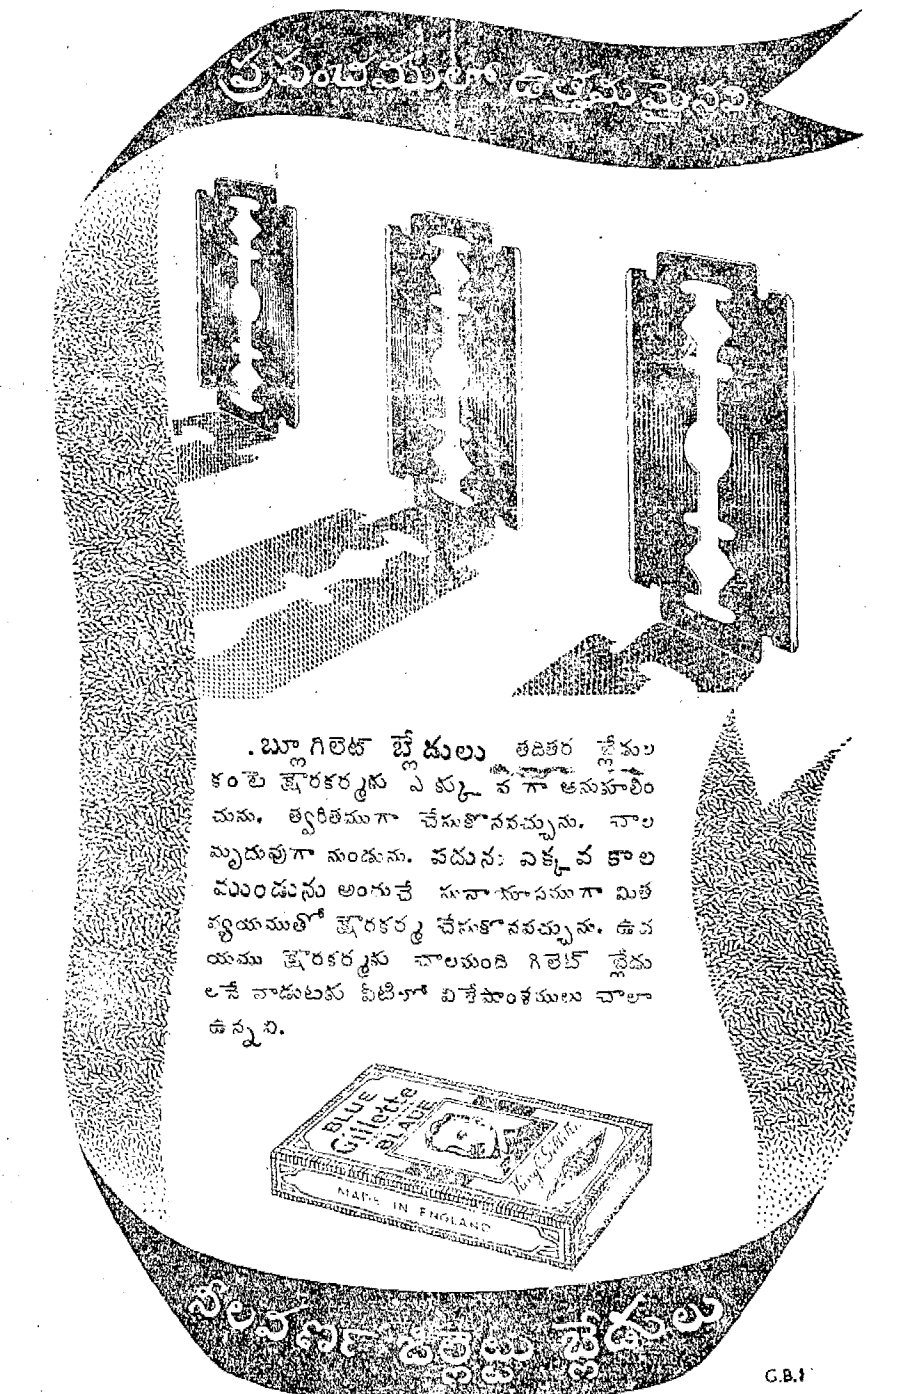 ప్రపంచములో ఉత్తమమైనవి
బ్లూగిలెట్ బ్లేడులు తదితర బ్లేడుల
కంటె క్షౌరకర్మకు ఎక్కువగా అనుకూలిం
చును. త్వరితముగా చేసుకొనవచ్చును. చాల
మృదువుగా నుండును. పదును ఎక్కవ కాల
ముండును అందుచే మిత
వ్యయముతో క్షౌరకర్మ చేసుకొనవచ్చును. ఉద
యము క్షౌరకర్మకు చాలమంది గిలెట్ బ్లేడు
లనే వాడుటకు వీటిలో విశేషాంశములు చాలా
ఉన్నవి.
BLUE
Gillette
BLADE
King Gillette
MADE IN ENGLAND
నీలవర్ణ జిల్లెట్టు బ్లేడులు
G.B.1